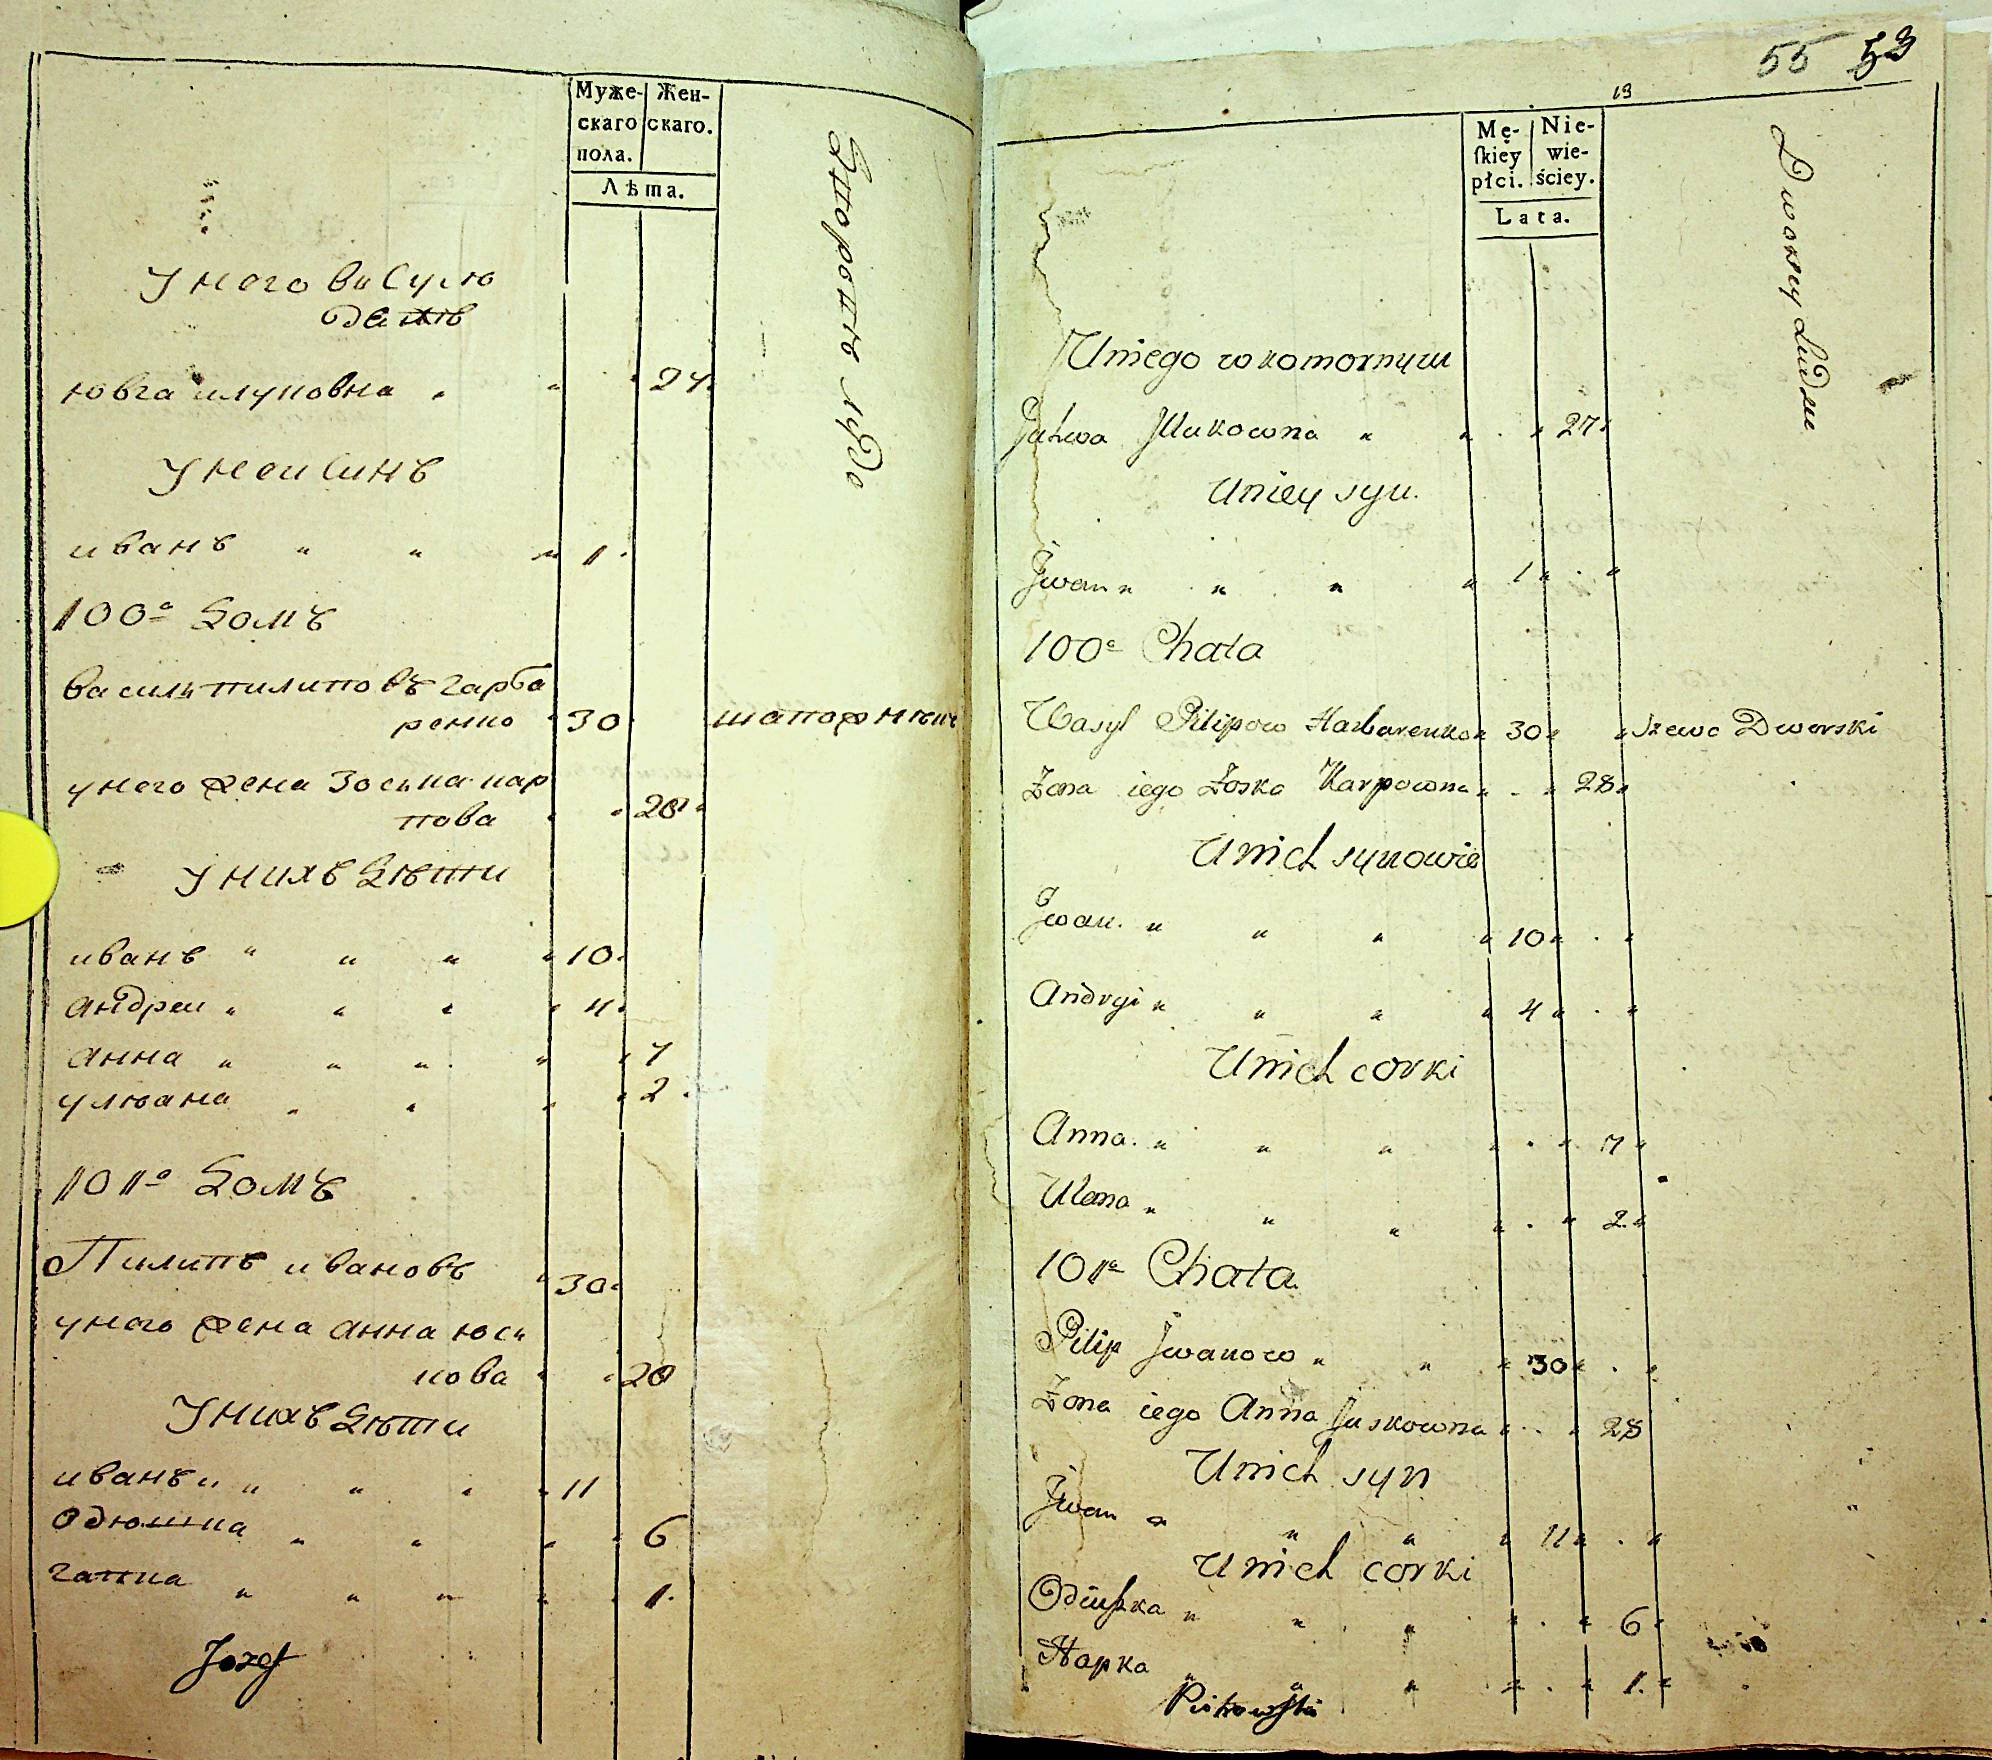 Муже-
скаго
пола.
Жен-
скаго.
Лѣта.
У него
ювга илуковна " " " 24.
У неи синъ
иванъ " " " 1.
100а домъ
василь пилиповъ гарба
ренко " 30
у него жена зоська кар
пова " " 28 "
У нихъ дѣти
иванъ " " " " 10.
андреи " " " " 4.
анна " " " " " 7
улюана " " " " 2.
101а домъ
Пилипъ ивановъ " 30.
у него жена анна юсь
кова " " 28
У нихъ дѣти
иванъ " " " " 11
Одюшка " " " " 6
гапка " " " " " 1.
Jozef
55 53
13
Mę-
ſkiey
płci.
Nie-
wie-
ściey.
Lata.
Dworscy Ludzie
Uniego w komornym
Jukowna " " . " 27 "
Uniey syn.
Jwan " " " " 1 " . "
100a Chata
Wasyl Pilipow Harbarenko " 30 " " Szewc Dworski
Żona iego Zoska Karpowna " . " 28 "
Unich synowie
Jwan. " " " " 10 " . "
Andryi " " " " 4 " . "
Unich corki
Anna. " " " " . " 7 "
Ulana " " " " . " 2 "
101a Chata
Pilip Jwanow " " " 30 " . "
Żona iego Anna Juskowna " . " 28
Unich syn
Jwan " " " " 11 " . "
Unich corki
Odiuszka " " " " . " 6 "
Hapka " " " " . " 1. "
Piotrowski